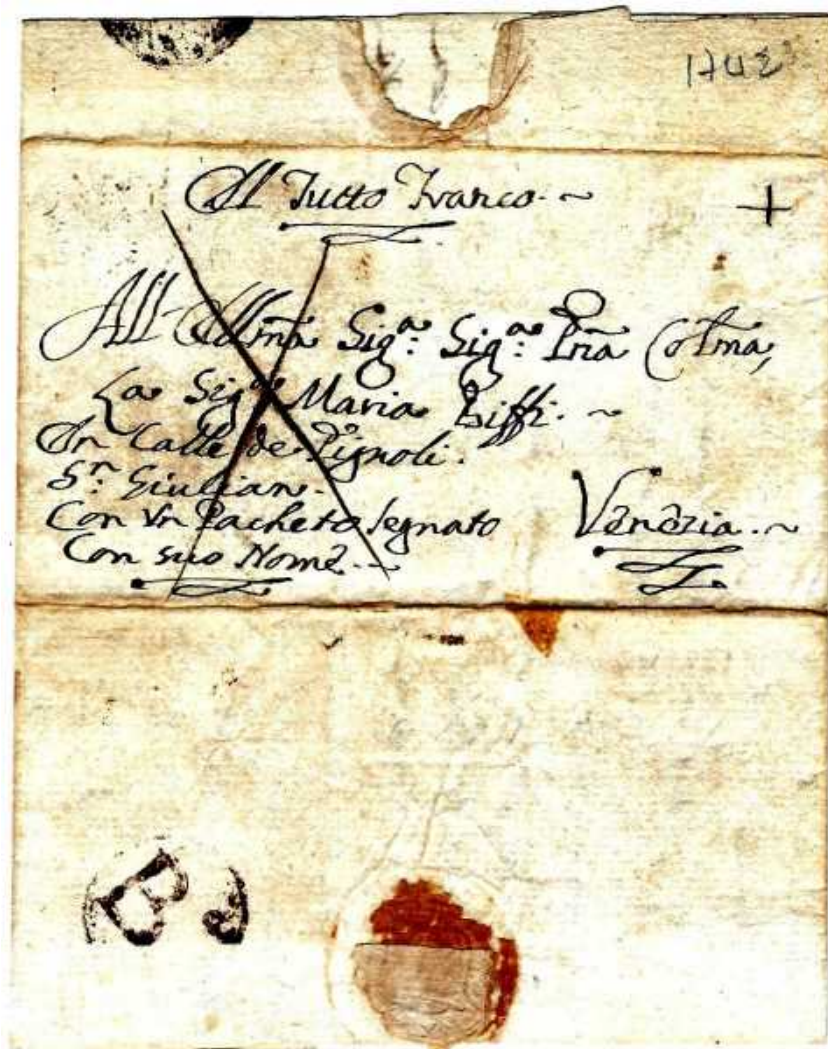 1742
Al Tutto Franco. ~
+
All Illma Sig.a Sig.a Pña Colma,
La Sig.a Maria Biffi. ~
In Calle de Pignoli.
S.n Giulian.
Con Vn Pacheto Segnato
Con suo Nome. ~
Venezia. ~
B